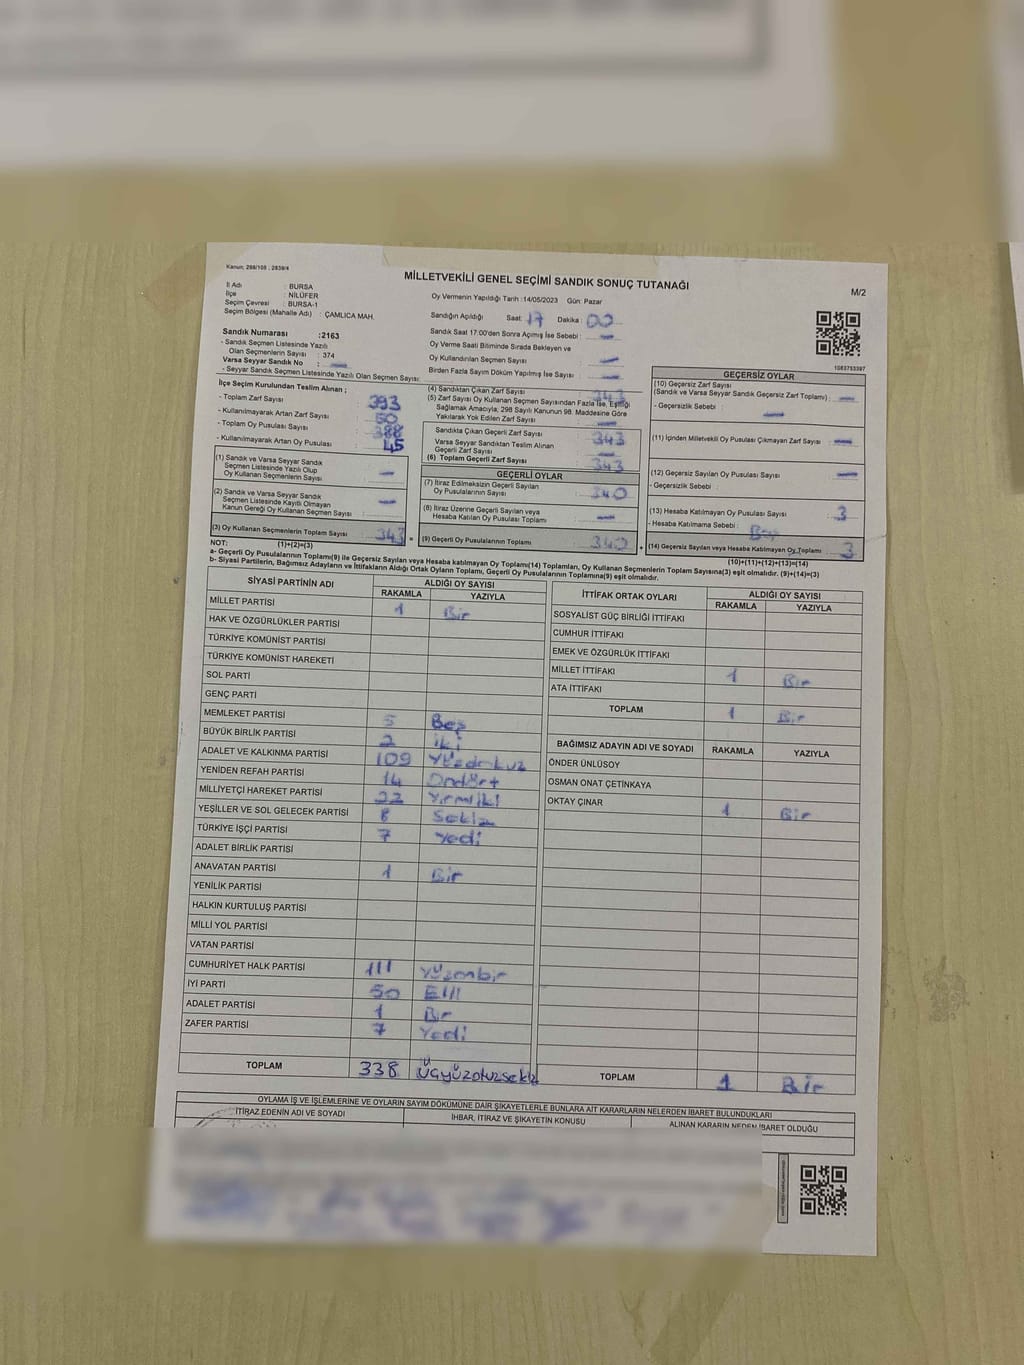 Kanun: 298/105 ; 2839/4
MİLLETVEKİLİ GENEL SEÇİMİ SANDIK SONUÇ TUTANAĞI
M/2
İl Adı : BURSA
İlçe : NİLÜFER
Seçim Çevresi : BURSA-1
Seçim Bölgesi (Mahalle Adı) : ÇAMLICA MAH.
Oy Vermenin Yapıldığı Tarih :14/05/2023 Gün: Pazar
Sandığın Açıldığı Saat: 17 Dakika : 00
Sandık Saat 17:00'den Sonra Açımış İse Sebebi : —
Oy Verme Saati Bitiminde Sırada Bekleyen ve
Oy Kullandırılan Seçmen Sayısı : —
Birden Fazla Sayım Döküm Yapılmış İse Sayısı : —
1083753397
Sandık Numarası :2163
- Sandık Seçmen Listesinde Yazılı
Olan Seçmenlerin Sayısı : 374
Varsa Seyyar Sandık No : —
- Seyyar Sandık Seçmen Listesinde Yazılı Olan Seçmen Sayısı:
İlçe Seçim Kurulundan Teslim Alınan ;
- Toplam Zarf Sayısı : 393
- Kullanılmayarak Artan Zarf Sayısı : 50
- Toplam Oy Pusulası Sayısı : 388
- Kullanılmayarak Artan Oy Pusulası : 45
(1) Sandık ve Varsa Seyyar Sandık
Seçmen Listesinde Yazılı Olup
Oy Kullanan Seçmenlerin Sayısı : —
(2) Sandık ve Varsa Seyyar Sandık
Seçmen Listesinde Kayıtlı Olmayan
Kanun Gereği Oy Kullanan Seçmen Sayısı : —
(3) Oy Kullanan Seçmenlerin Toplam Sayısı : 343 =
(4) Sandıktan Çıkan Zarf Sayısı : 343
(5) Zarf Sayısı Oy Kullanan Seçmen Sayısından Fazla İse, Eşitliği
Sağlamak Amacıyla, 298 Sayılı Kanunun 98. Maddesine Göre
Yakılarak Yok Edilen Zarf Sayısı : —
Sandıkta Çıkan Geçerli Zarf Sayısı : 343
Varsa Seyyar Sandıktan Teslim Alınan
Geçerli Zarf Sayısı : —
(6) Toplam Geçerli Zarf Sayısı : 343
GEÇERLİ OYLAR
(7) İtiraz Edilmeksizin Geçerli Sayılan
Oy Pusulalarının Sayısı : 340
(8) İtiraz Üzerine Geçerli Sayılan veya
Hesaba Katılan Oy Pusulası Toplamı : —
(9) Geçerli Oy Pusulalarının Toplamı : 340 +
GEÇERSİZ OYLAR
(10) Geçersiz Zarf Sayısı
(Sandık ve Varsa Seyyar Sandık Geçersiz Zarf Toplamı) : —
- Geçersizlik Sebebi : —
(11) İçinden Milletvekili Oy Pusulası Çıkmayan Zarf Sayısı : —
(12) Geçersiz Sayılan Oy Pusulası Sayısı : —
- Geçersizlik Sebebi :
(13) Hesaba Katılmayan Oy Sayısı : 3
- Hesaba Katılmama Sebebi : Boş
(14) Geçersiz Sayılan veya Hesaba Katılmayan Oy Toplamı 3
NOT: (1)+(2)=(3) (10)+(11)+(12)+(13)=(14)
a- Geçerli Oy Pusulalarının Toplamı(9) ile Geçersiz Sayılan veya Hesaba katılmayan Oy Toplamı(14) Toplamları, Oy Kullanan Seçmenlerin Toplam Sayısına(3) eşit olmalıdır. (9)+(14)=(3)
b- Siyasi Partilerin, Bağımsız Adayların ve İttifakların Aldığı Ortak Oyların Toplamı, Geçerli Oy Pusulalarının Toplamına(9) eşit olmalıdır.
SİYASİ PARTİNİN ADI ALDIĞI OY SAYISI
RAKAMLA YAZIYLA
MİLLET PARTİSİ 1 Bir
HAK VE ÖZGÜRLÜKLER PARTİSİ
TÜRKİYE KOMÜNİST PARTİSİ
TÜRKİYE KOMÜNİST HAREKETİ
SOL PARTİ
GENÇ PARTİ
MEMLEKET PARTİSİ 5 Beş
BÜYÜK BİRLİK PARTİSİ 2 iki
ADALET VE KALKINMA PARTİSİ 109 Yüzdokuz
YENİDEN REFAH PARTİSİ 14 Ondört
MİLLİYETÇİ HAREKET PARTİSİ 22 Yirmiiki
YEŞİLLER VE SOL GELECEK PARTİSİ 8 Sekiz
TÜRKİYE İŞÇİ PARTİSİ 7 Yedi
ADALET BİRLİK PARTİSİ
ANAVATAN PARTİSİ 1 Bir
YENİLİK PARTİSİ
HALKIN KURTULUŞ PARTİSİ
MİLLİ YOL PARTİSİ
VATAN PARTİSİ
CUMHURİYET HALK PARTİSİ 111 Yüzonbir
İYİ PARTİ 50 Elli
ADALET PARTİSİ 1 Bir
ZAFER PARTİSİ 7 Yedi
TOPLAM 338 Üçyüzotuzsekiz
İTTİFAK ORTAK OYLARI ALDIĞI OY SAYISI
RAKAMLA YAZIYLA
SOSYALİST GÜÇ BİRLİĞİ İTTİFAKI
CUMHUR İTTİFAKI
EMEK VE ÖZGÜRLÜK İTTİFAKI
MİLLET İTTİFAKI 1 Bir
ATA İTTİFAKI
TOPLAM 1 Bir
BAĞIMSIZ ADAYIN ADI VE SOYADI RAKAMLA YAZIYLA
ÖNDER ÜNLÜSOY
OSMAN ONAT ÇETİNKAYA
OKTAY ÇINAR 1 Bir
TOPLAM 1 Bir
OYLAMA İŞ VE İŞLEMLERİNE VE OYLARIN SAYIM DÖKÜMÜNE DAİR ŞİKAYETLERLE BUNLARA AİT KARARLARIN NELERDEN İBARET BULUNDUKLARI
İTİRAZ EDENİN ADI VE SOYADI İHBAR, İTİRAZ VE ŞİKAYETİN KONUSU ALINAN KARARIN NEDEN İBARET OLDUĞU